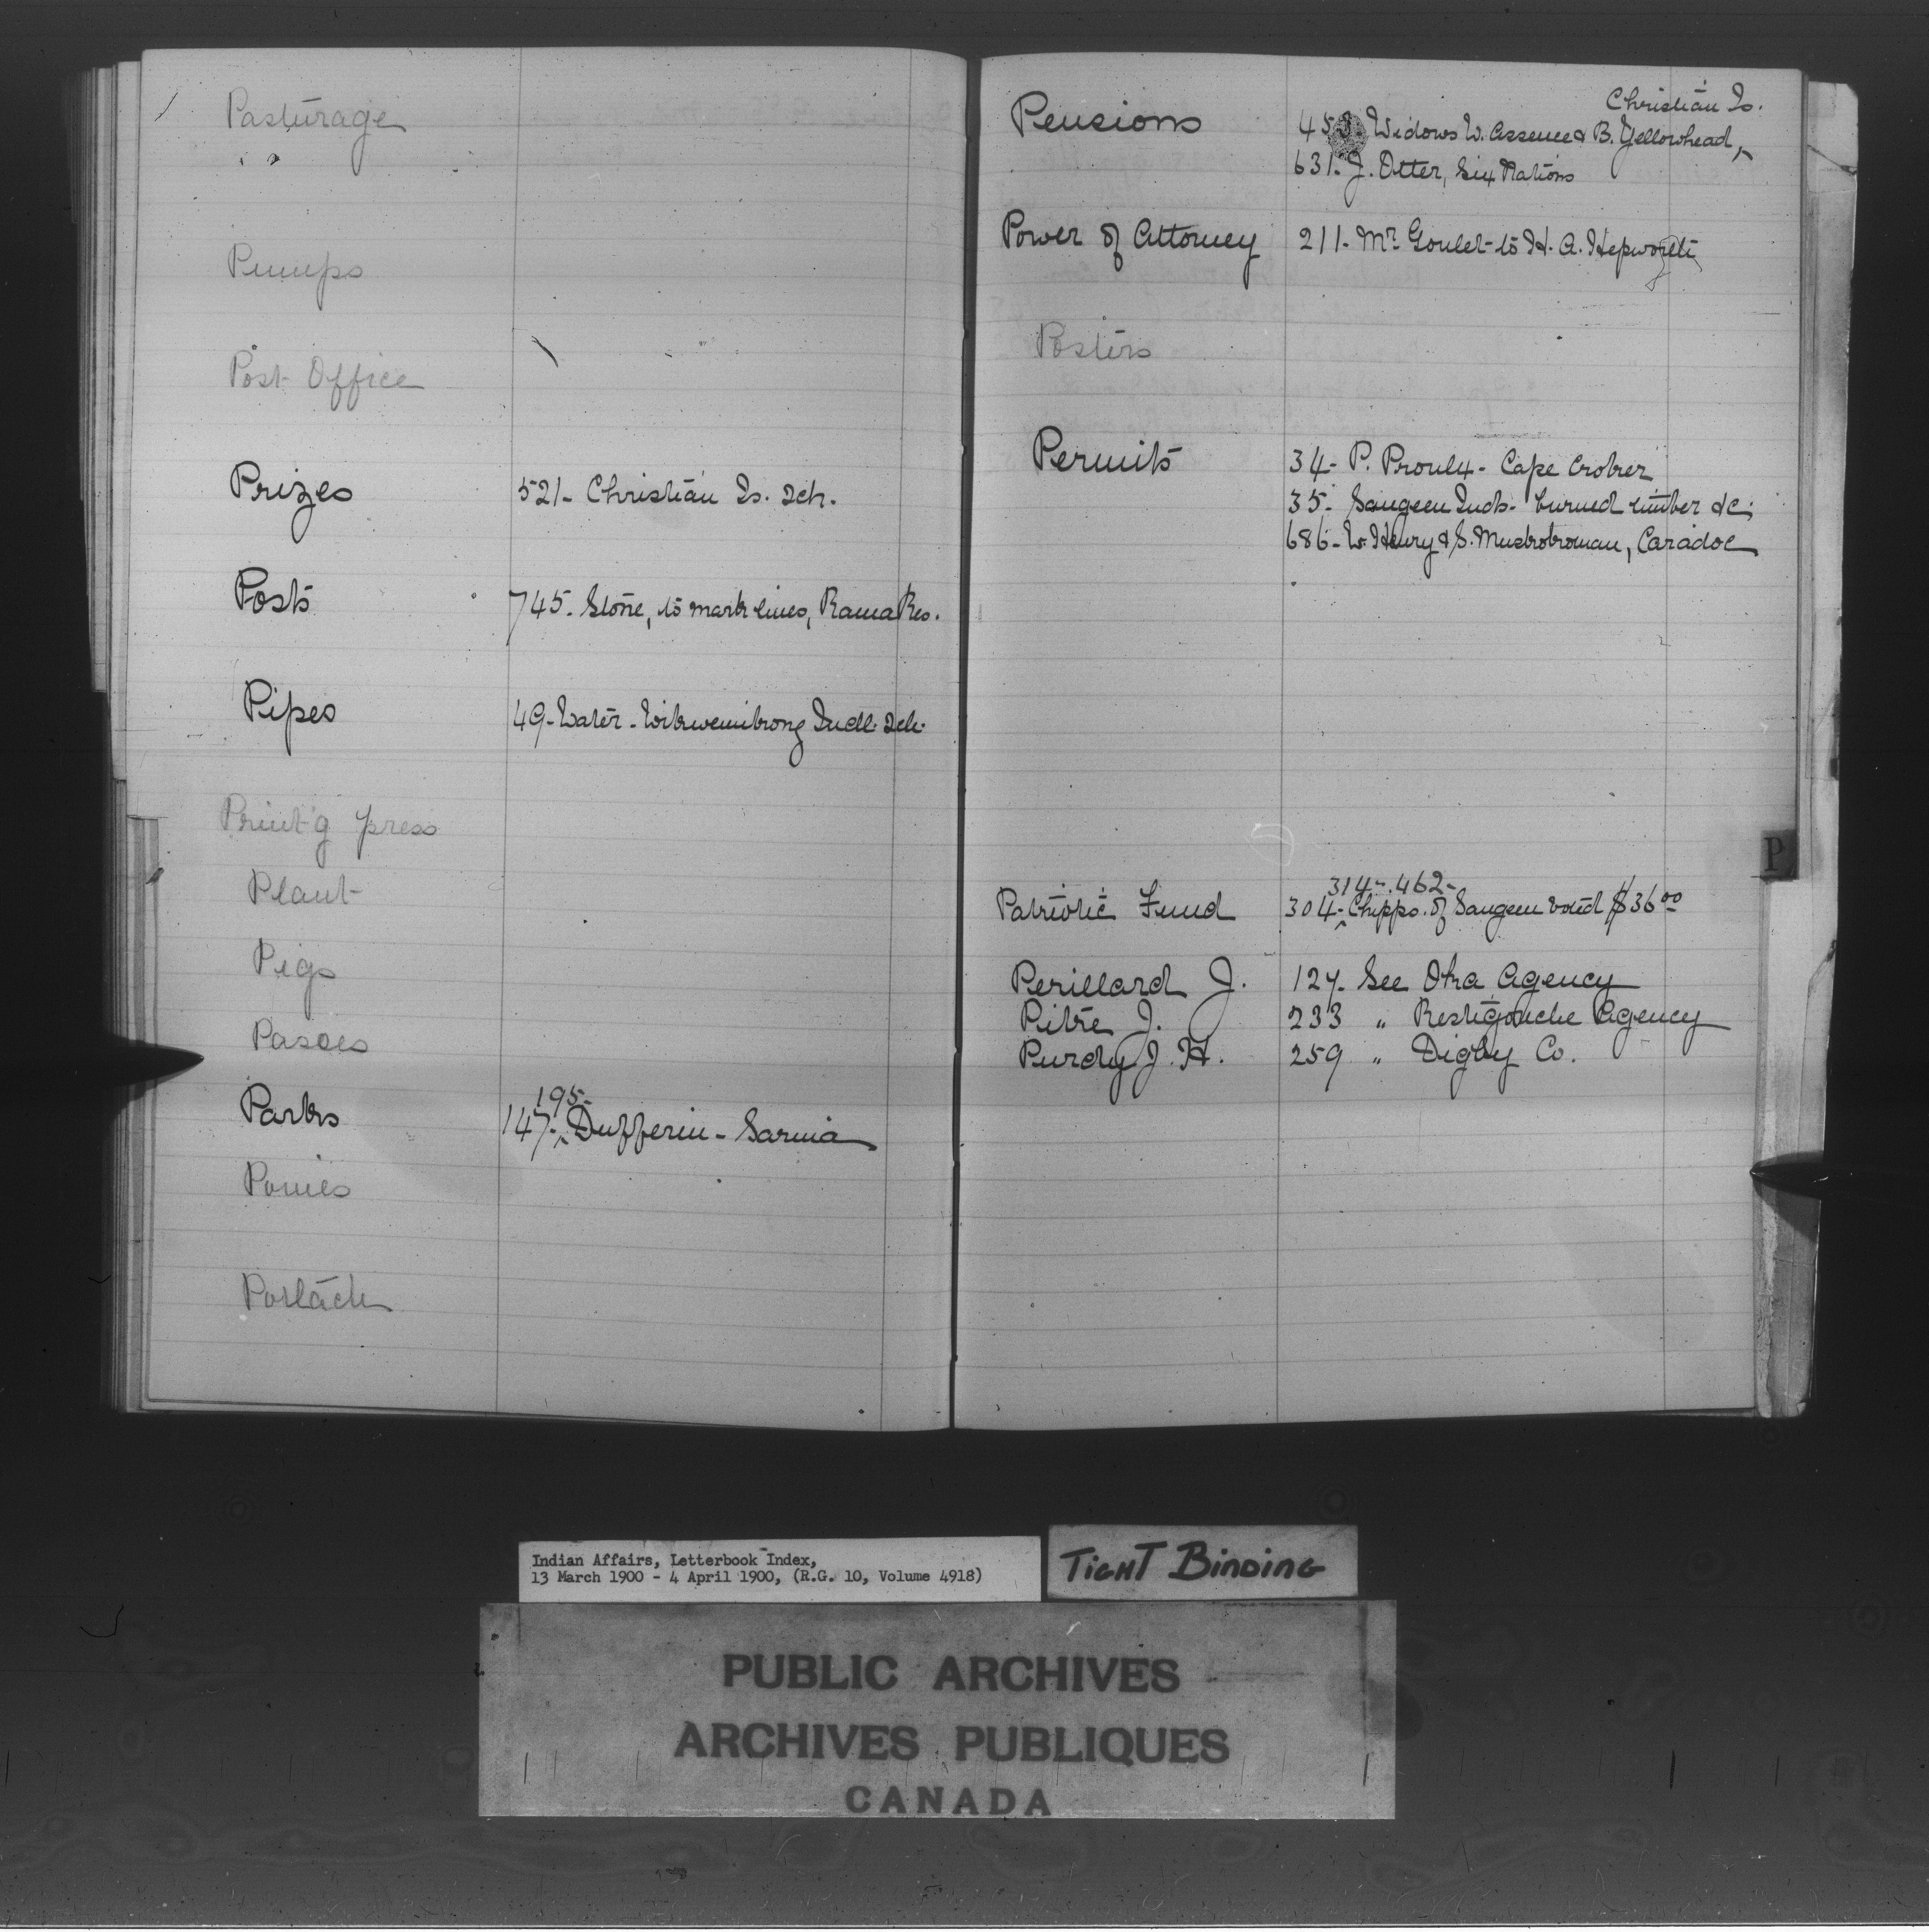 Pasturage
" "
Pumps
Post Office
Prizes 521- Christian Is. Sch.
Posts 745. Stone, to mark lines, Rama Res.
Pipes 49- Water - Wikwemikong Indl. Sch.
Print'g press
Plant
Pigs
Passes
195-
Parks 147-^ Dufferin - Sarnia
Ponies
Potlach
Christian Is.
Pensions 453- Widows W. Assence & B. Yellowhead,^
631. J. Otter, Six Nations
Power of Attorney 211- Mr. Goulet to H. A. Hepworth
Posters
Permits 34- P. Proulx - Cape Croker
35- Saugeen Inds. burned timber &c.
686- W. Henry & S. Muskokoman, Caradoc
P
314-. 462-
Patriotic Fund 304-^ Chipps. of Saugeen voted $36 00
Perillard J. 127. See Oka Agency
Pitre J. 233 " Restigouche Agency
Purdy J. H. 259 " Digby Co.
Indian Affairs, Letterbook Index,
13 March 1900 - 4 April 1900, (R.G. 10, Volume 4918)
TIGHT BINDING
PUBLIC ARCHIVES
ARCHIVES PUBLIQUES
CANADA